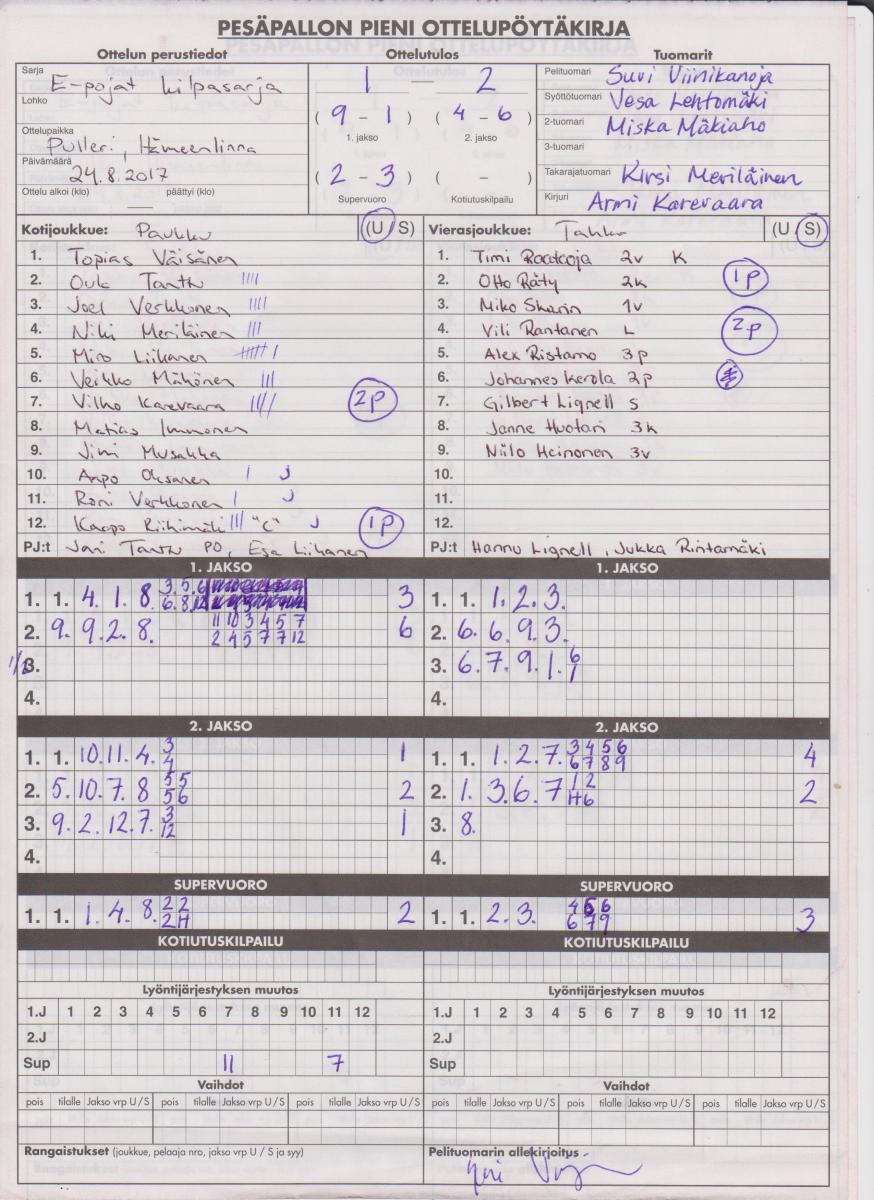 PESÄPALLON PIENI OTTELUPÖYTÄKIRJA
Ottelun perustiedot
Sarja E-pojat kilpasarja
Lohko
Ottelupaikka Pulleri, Hämeenlinna
Päivämäärä 24.8.2017
Ottelu alkoi (klo) — päättyi (klo)
Ottelutulos
1 — 2
( 9 - 1 ) ( 4 - 6 )
1. jakso 2. jakso
( 2 - 3 ) ( - )
Supervuoro Kotiutuskilpailu
Tuomarit
Pelituomari Suvi Viinikanoja
Syöttötuomari Vesa Lehtomäki
2-tuomari Miska Mäkiaho
3-tuomari
Takarajatuomari Kirsi Meriläinen
Kirjuri Armi Karevaara
Kotijoukkue: Paukku (U / S)
1. Topias Väisänen
2. Oula Tanttu ||||
3. Joel Verkkonen ||||
4. Niki Meriläinen |||
5. Miro Liikanen
6. Veikko Mähönen |||
7. Vilho Karevaara 2p
8. Matias Immonen
9. Jimi Musakka
10. Aapo Oksanen | J
11. Roni Verkkonen | J
12. Kaapo Riihimäki ||| "C" J 1p
PJ:t Jani Tanttu PO, Esa Liikanen
Vierasjoukkue: Tahko (U / S)
1. Timi Raatcoja 2v K
2. Otto Räty 2k 1p
3. Miko Skarin 1v
4. Vili Rantanen L 2p
5. Alex Ristamo 3p
6. Johannes Kerola 2p
7. Gilbert Lignell S
8. Janne Huotari 3k
9. Niilo Heinonen 3v
10.
11.
12.
PJ:t Hannu Lignell, Jukka Rintamäki
1. JAKSO
1. 1. 4. 1. 8. 3. 5. 6 3
6. 8. 12
2. 9. 9. 2. 8. 11 10 3 4 5 7 6
2 4 5 7 7 12
3.
4.
1. JAKSO
1. 1. 1. 2. 3.
2. 6. 6. 9. 3.
3. 6. 7. 9. 1. 6 1
4.
2. JAKSO
1. 1. 10. 11. 4. 3 1
4
2. 5. 10. 7. 8 5 5 2
5 6
3. 9. 2. 12. 7. 3 1
12
4.
2. JAKSO
1. 1. 1. 2. 7. 3 4 5 6 4
6 7 8 9
2. 1. 3. 6. 7 1 2 2
H 6
3. 8.
4.
SUPERVUORO
1. 1. 1. 4. 8. 2 2 2
2 H
SUPERVUORO
1. 1. 2. 3. 4 5 6 3
6 7 9
KOTIUTUSKILPAILU
KOTIUTUSKILPAILU
Lyöntijärjestyksen muutos
1.J 1 2 3 4 5 6 7 8 9 10 11 12
2.J
Sup 11 7
Lyöntijärjestyksen muutos
1.J 1 2 3 4 5 6 7 8 9 10 11 12
2.J
Sup
Vaihdot
pois tilalle Jakso vrp U / S pois tilalle Jakso vrp U / S
Vaihdot
pois tilalle Jakso vrp U / S pois tilalle Jakso vrp U / S
Rangaistukset (joukkue, pelaaja nro, jakso vrp U / S ja syy)
Pelituomarin allekirjoitus